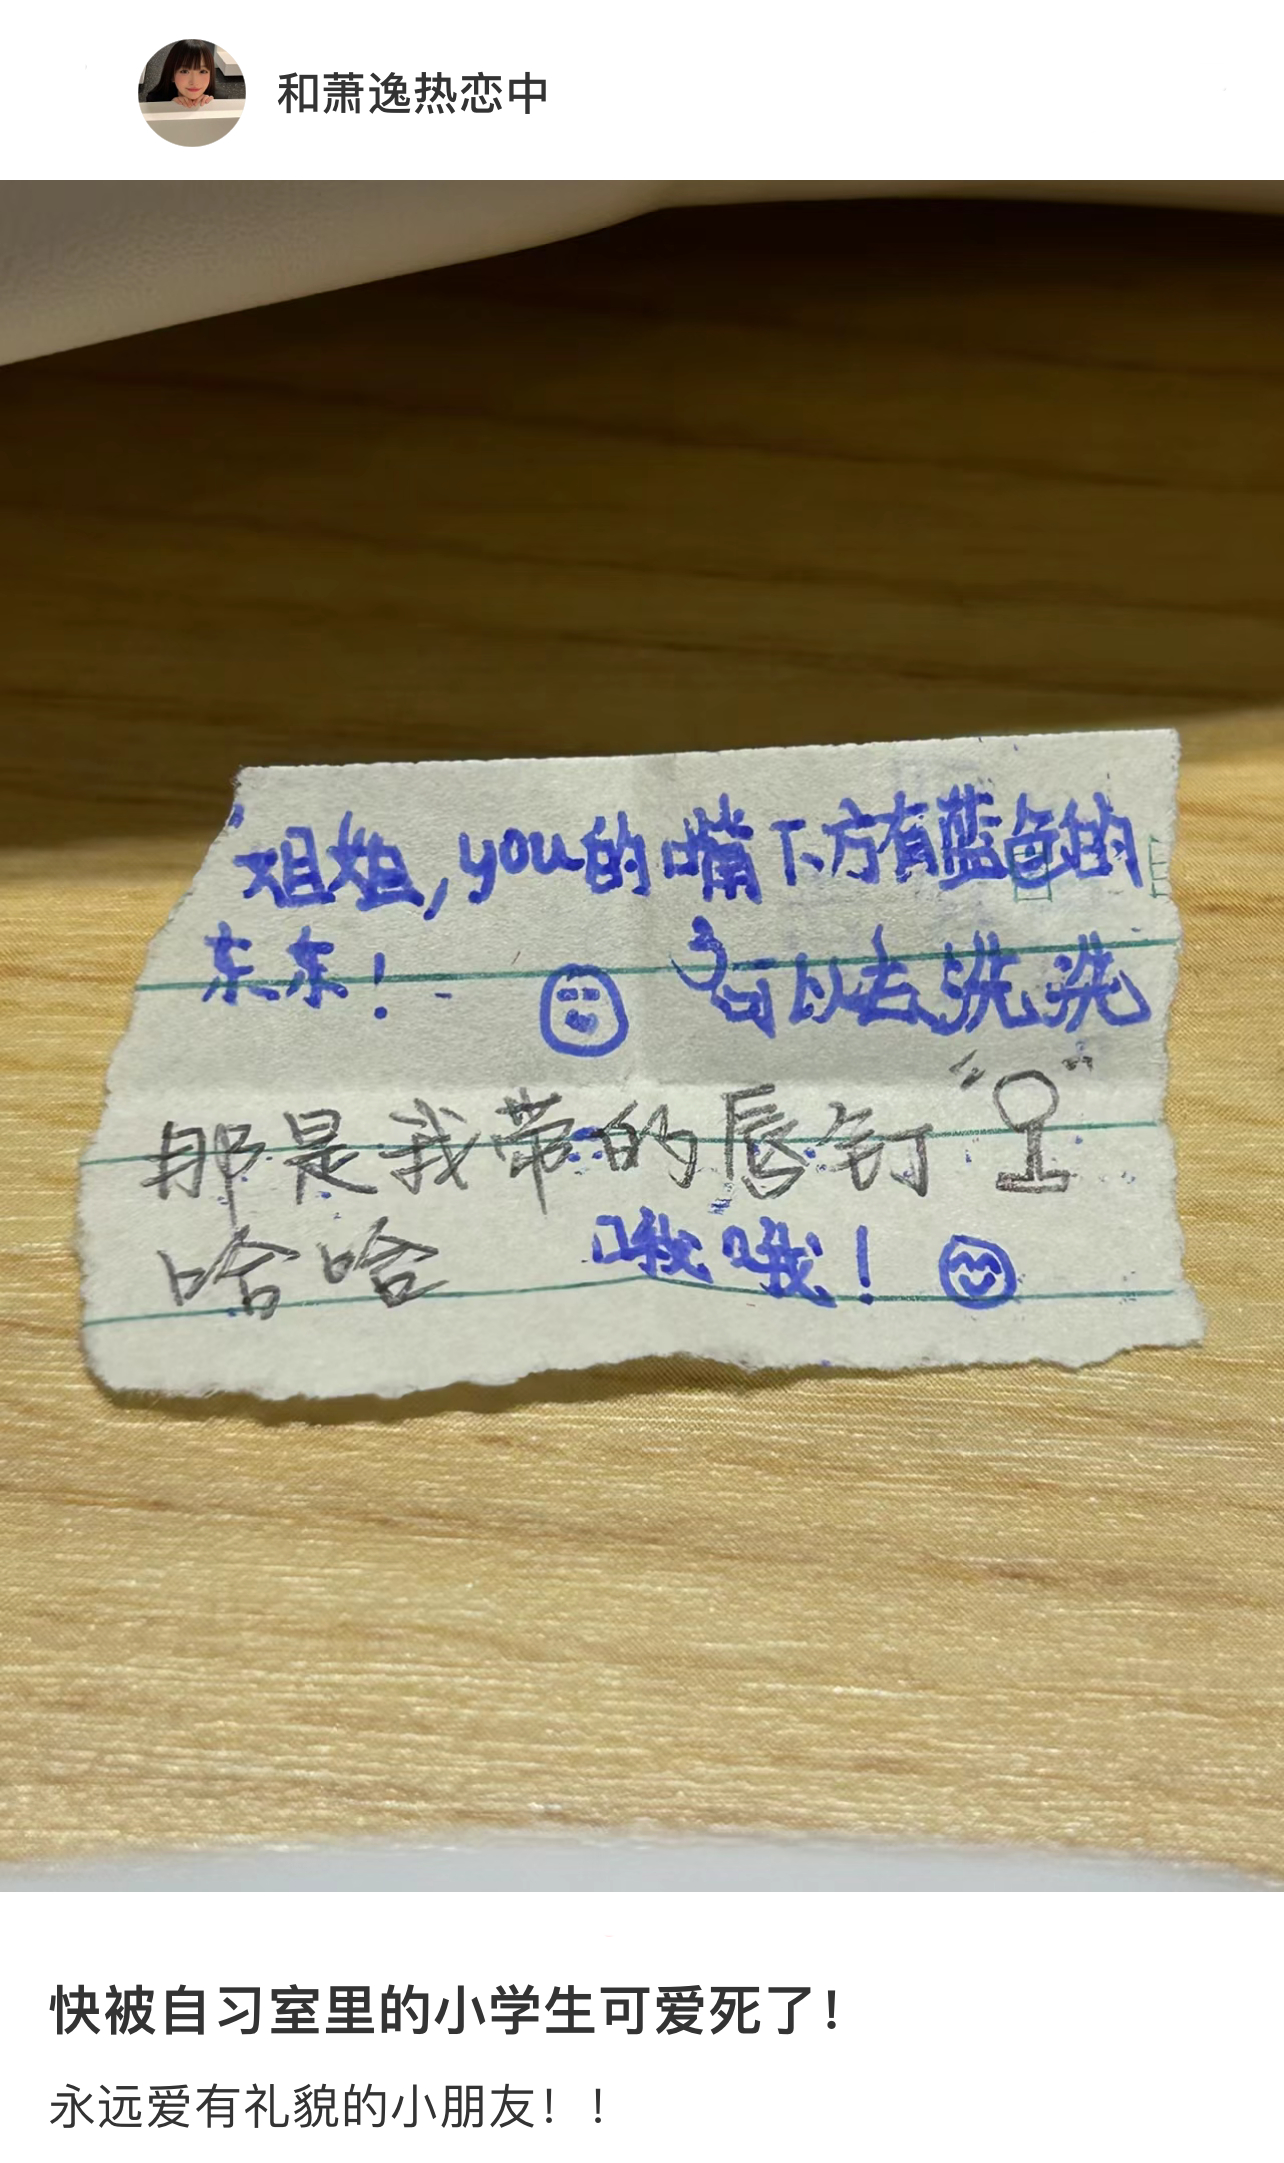 和萧逸热恋中
姐姐，you的嘴下方有蓝色的
东东！ 可以去洗洗
那是我带的唇钉
哈哈 哦哦！
快被自习室里的小学生可爱死了！
永远爱有礼貌的小朋友！！